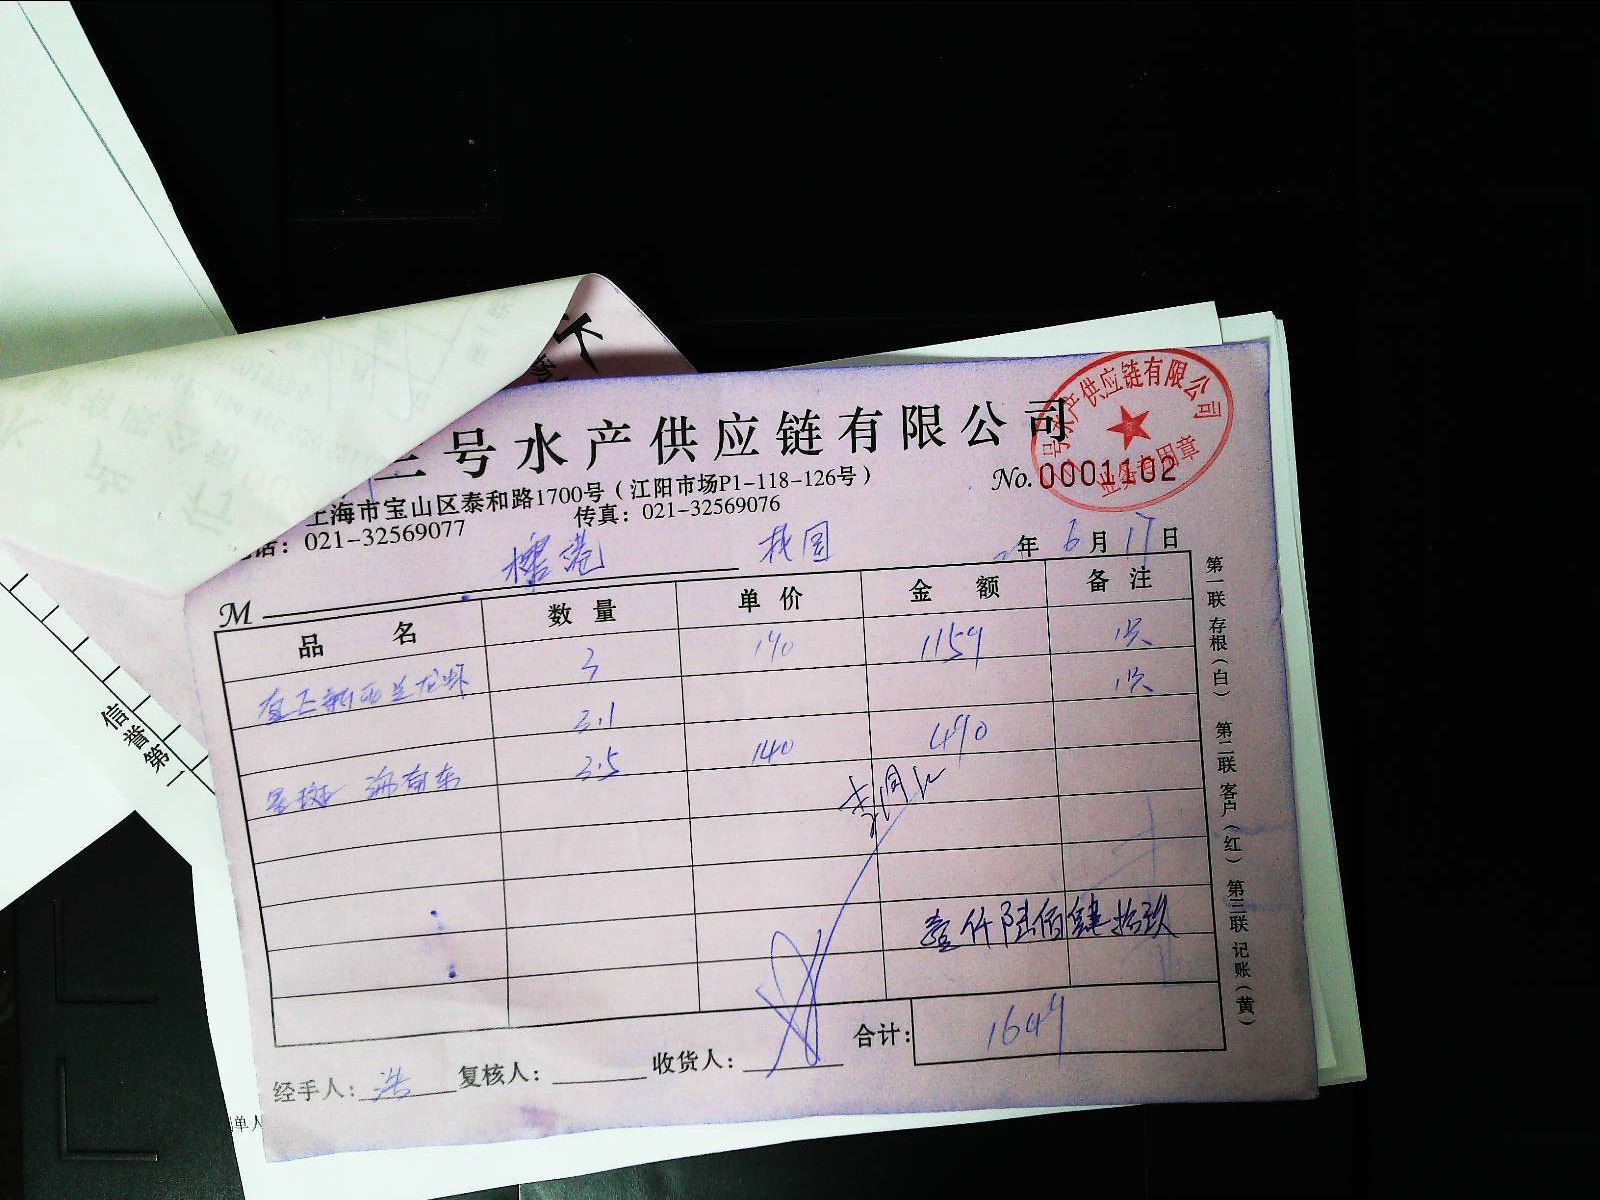 三号水产供应链有限公司
号水产供应链有限公司
业务专用章
上海市宝山区泰和路1700号（江阳市场P1-118-126号）
No. 0001102
电话：021-32569077 传真：021-32569076
年 6 月 17 日
M
品 名 数 量 单 价 金 额 备 注
新西兰龙虾 3 190 1159 1只
3.1 1只
星斑 3.5 140 490
壹仟陆佰肆拾玖
合计： 1649
经手人：浩 复核人： 收货人：
第一联 存根（白） 第二联 客户（红） 第三联 记账（黄）
信誉第一
单人